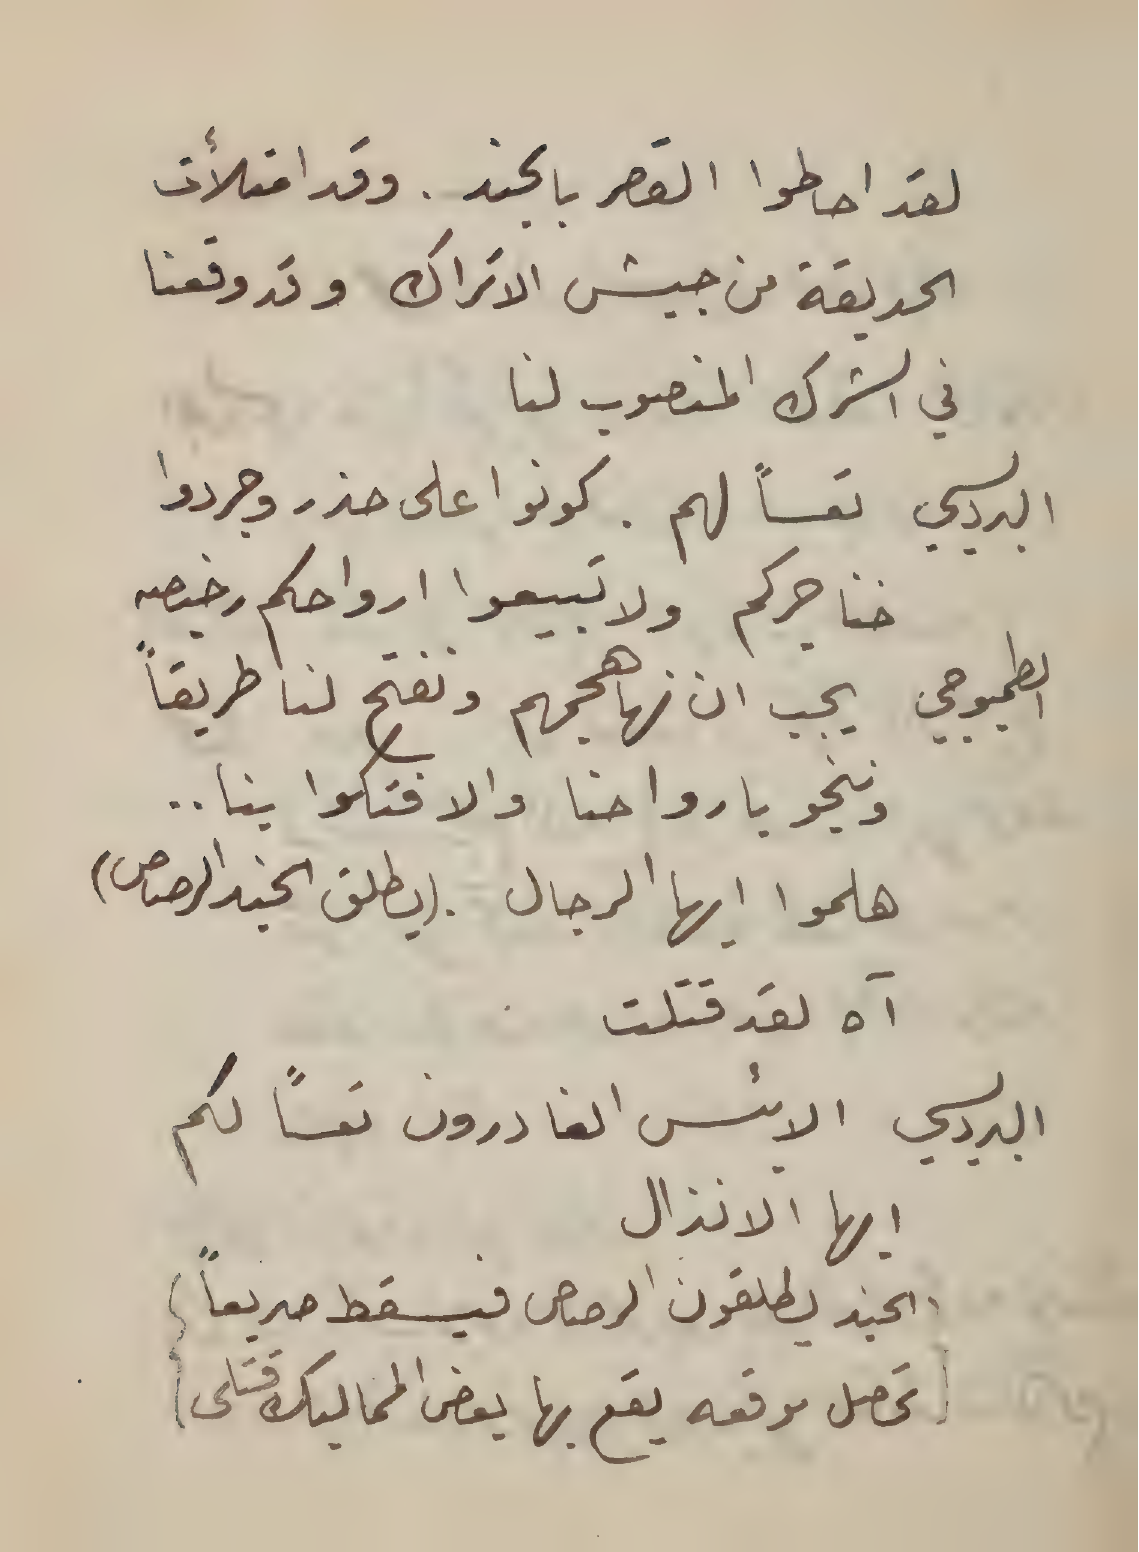 لقد احاطوا القصر بالجند . وقد امتلأت
الحديقة من جيش الاتراك وقد وقعنا
في الشرك المنصوب لنا
البرديسي تعساً لهم . كونوا على حذر وجردوا
خناجركم ولا تبيعوا ارواحكم رخيصه
الطمبوجي يجب ان نهاهجمهم ونفتح لنا طريقاً
وننجو بارواحنا والا فتكوا بنا ..
هلموا ايها الرجال . (يطلق الجند الرصاص)
آه لقد قتلت
البرديسي الابئس الغادرون تعساً لكم
ايها الانذال
(الجند يطلقون الرصاص فيسقط صريعاً)
[تحصل موقعه يقع بها بعض المماليك قتلى]